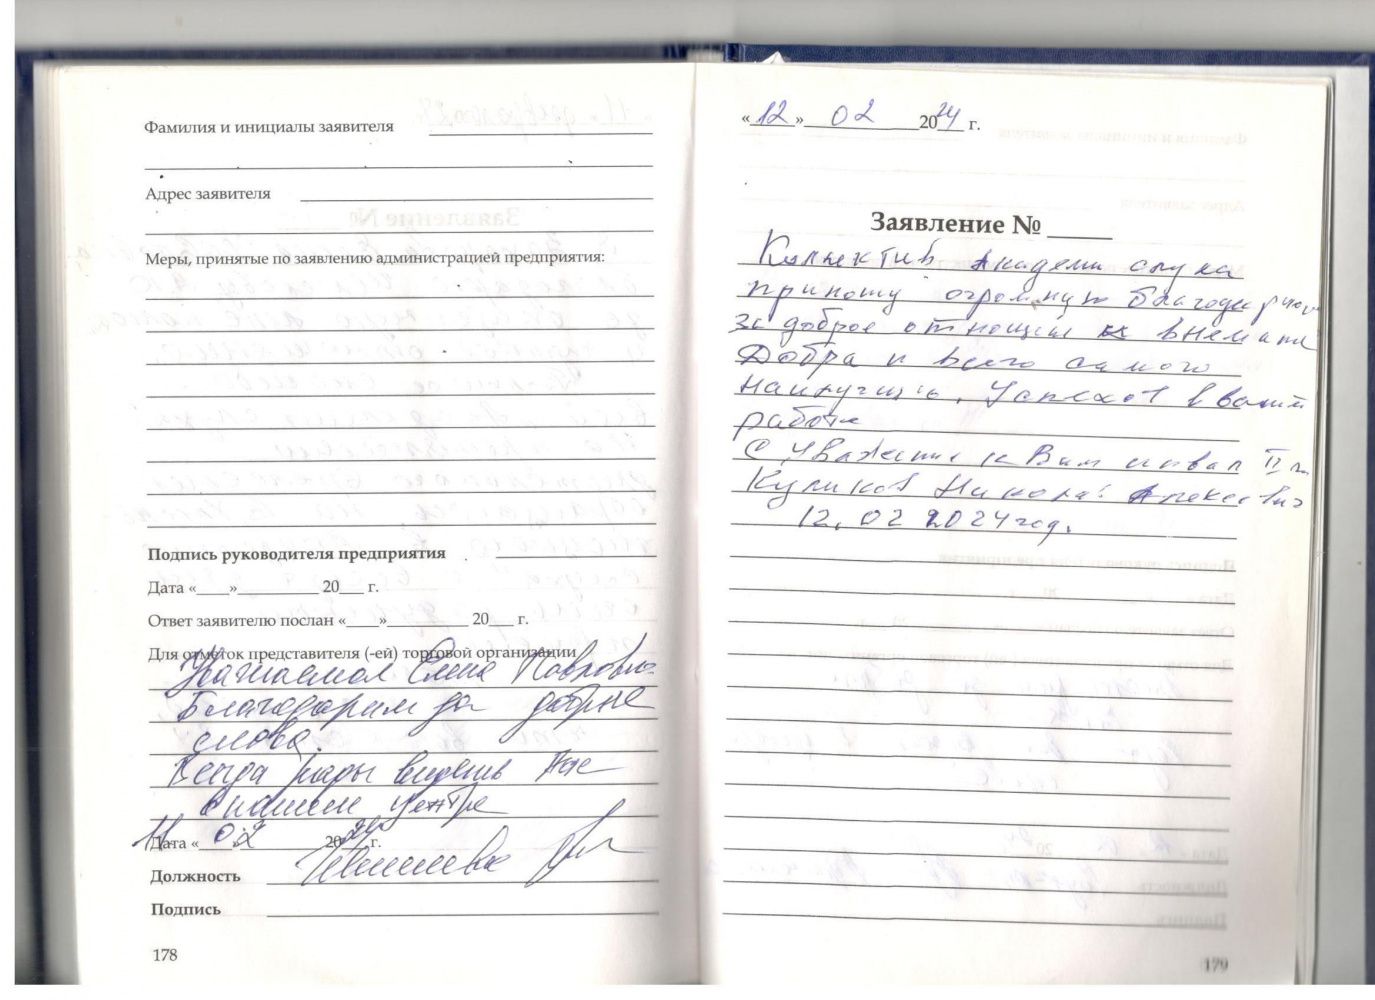 Фамилия и инициалы заявителя
Адрес заявителя
Меры, принятые по заявлению администрацией предприятия:
Подпись руководителя предприятия
Дата «____»__________ 20___ г.
Ответ заявителю послан «____»__________ 20___ г.
Для отметок представителя (-ей) торговой организации
Уважаемая Елена Павловна
Благодарим за добрые
слова!
Всегда рады видеть Вас
в нашем центре
Дата « 11 » 02 2024 г.
Должность
Подпись
178
«12» 02 2024 г.
Заявление № _____
Коллектив Академи слуха
приношу огромную благодарнос
за доброе отношени и внемание
Добра и всего самого
наилучшего. Успехов в вашей
работе
С Уважение к Вам инвал II гр.
Куликов Николай Алексеевич
12.02 2024 год.
179